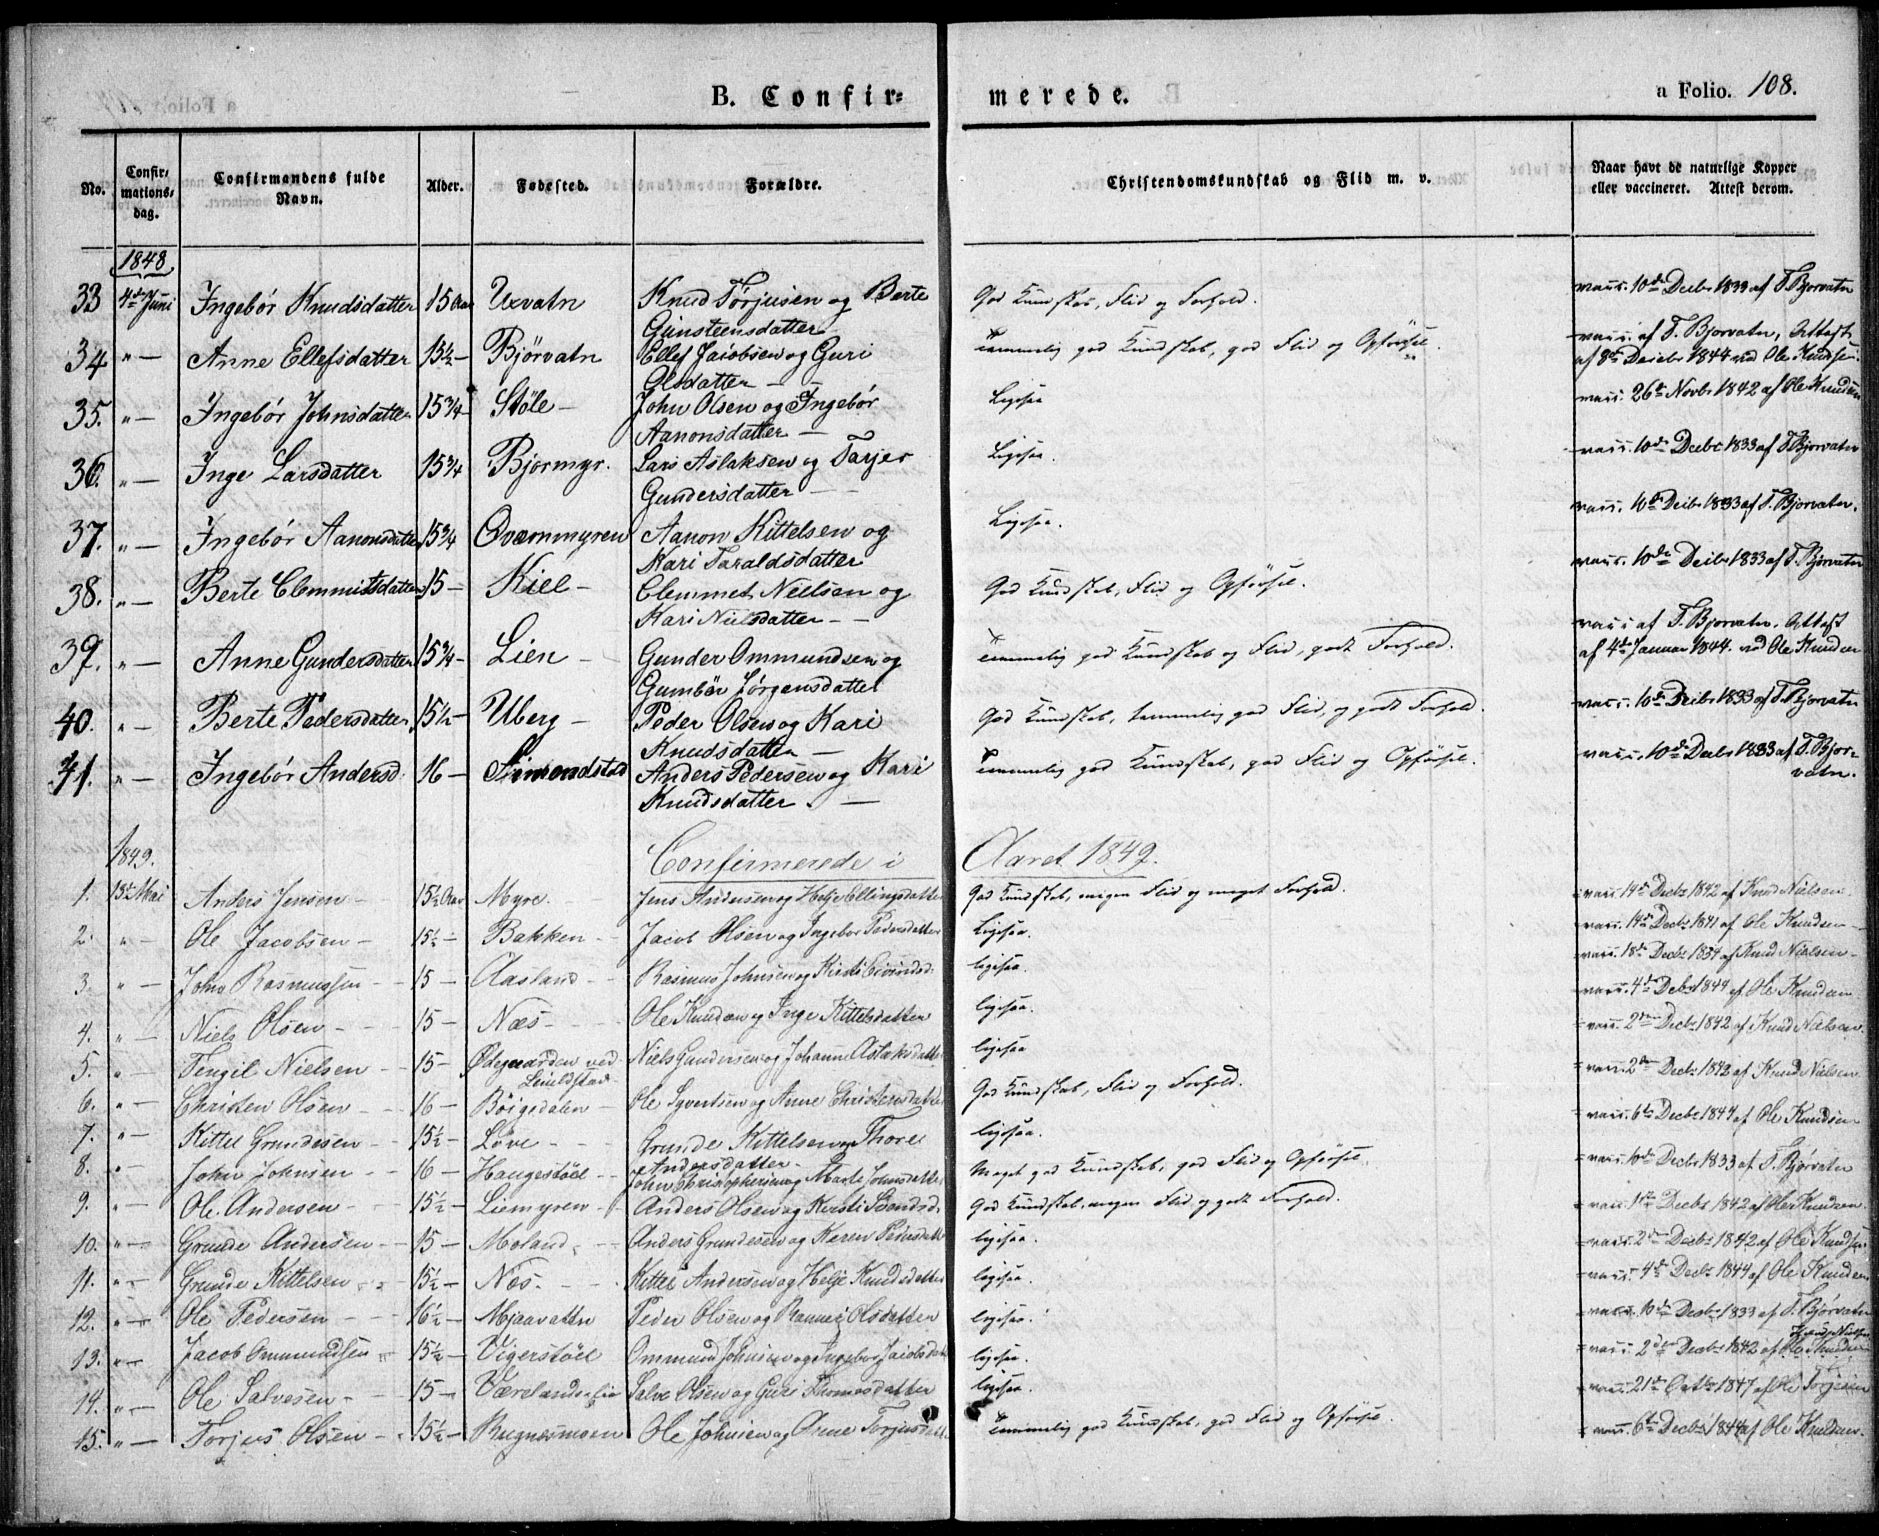 B. Confir= merede. a Folio. 108.
No. Confir= mations= dag. Confirmandens fulde Navn. Alder. Fødested. Forældre. Christendomskundskab og Flid m. v. Naar havt de naturlige Kopper eller vaccineret. Attest derom.
1848
33 4de Juni Ingebör Knudsdatter 15 Aar Uxvatn Knud Törjusen og Berte Gunsteensdatter God Kundskab, Flid og Forhold. vacc. 10de Decbr 1833 af T. Bjorvatn
34 " — Anne Ellefsdatter 15½ — Björvatn Ellef Jacobsen og Guri Olsdatter — Temmelig god Kundskab, god Flid og Opförsel. vacc. af T. Bjorvatn, Attest af 8de Decebr 1844 ved Ole Knudsen.
35. " — Ingebör Johnsdatter 15¾ — Stöle — John Olsen og Ingebör Aanonsdatter — Ligesaa vacc. 26de Novbr 1842 af Ole Knudsen
36. " — Inge Larsdatter 15¾ Bjormyr. Lars Aslaksen og Tarjer Gundersdatter — Ligesaa. vacc. 10de Decbr 1833 af T. Bjorvatn
37. " — Ingebör Aanonsdatter 15¾ Qvæmmyren Aanon Kittelsen og Kari Taraldsdatter Ligesaa. vacc. 10de Decbr 1833 af T. Bjorvatn.
38. " — Berte Clemmitsdatter 15 — Kiel — Clemmet Nielsen og Kari Nielsdatter — God Kundskab, Flid og Opförsel. vacc. 10de Decbr 1833 af T. Bjorvatn
39. " — Anne Gundersdatter 15¾ — Lien — Gunder Ommundsen og Gumbör Jörgensdatter Temmelig god Kundskab og Flid, godt Forhold. vacc. af T. Bjorvatn. Attest af 4de Januar 1844. ved Ole Knudsen
40. " — Berte Pedersdatter 15½ — Uberg — Peder Olsen og Kari Knudsdatter — God Kundskab, temmelig god Flid, og godt Forhold. vacc. 10de Decbr 1833 af T. Bjorvatn
41. " — Ingebör Andersd. 16 — Simonstad Anders Pedersen og Kari Knudsdatter. — Temmelig god Kundskab, god Flid og Opförsel. vacc. 10de Decbr 1833 af T. Bjorvatn.
1849. Confirmerede i Aaret 1849.
1. 13de Mai Anders Jensen — 15½ Aar Myre. Jens Andersen og Helje Ellingsdatter God Kundskab, megen Flid og meget Forhold. vacc. 14de Decbr 1842 af Knud Nielsen
2. " — Ole Jacobsen — 15½ — Bakken — Jacob Olsen og Ingebor Pedersdatter Ligesaa. vacc. 14de Decbr 1841 af Ole Knudsen —
3. " — John Rasmussen — 15 — Aasland — Rasmus Johnsen og Kirsti Eivindsd. ligesaa. vacc. 18de Decbr 1837 af Knud Nielsen —
4. " — Niels Olsen — 15 — Næs — Ole Knudsen og Inge Kittelsdatter ligesaa. vacc. 4de Decbr 1844 af Ole Knudsen
5. " Tengil Nielsen — 15 — Ødegaarden ved Niels Gundersen og Johanne Aslaksdatter ligesaa vacc. 2den Decbr 1842 af Knud Nielsen.
6. " — Christen Olsen — 16 — Böigedalen — Ole Syvertsen og Anne Christensdatter God Kundskab, Flid og Forhold. vacc. 2den Decbr 1842 af Knud Nielsen.
7. " — Kittel Grundesen — 15½ — Löve — Grunde Kittelsen og Thore Andersdatter — ligesaa. vacc. 6te Decbr 1844 af Ole Knudsen
8. " — John Johnsen — 16 Haugestöel — John Christophersen og Marte Johnsdatter Meget god Kundskab, god Flid og Opförsel. vacc. 10de Decbr 1833 af T. Bjørvatn
9. " — Ole Andersen — 15½ — Liemyren — Anders Olsen og Kirsti Bendsd. God Kundskab, megen Flid og godt Forhold. vacc. 1ste Decbr 1842 af Ole Knudsen.
10. " — Grunde Andersen — 15 — Moland — Anders Grundesen og Karen Pedersdatter ligesaa. vacc. 2den Decbr 1842 af Ole Knudsen
11. " — Grunde Kittelsen — 15½ — Næs. — Kittel Andersen og Helje Knudsdatter ligesaa. vacc. 4de Decbr 1844 af Ole Knudsen
12. " — Ole Pedersen — 16½ — Mjaavattn Peder Olsen og Rannei Olsdatter ligesaa. vacc. 10de Decbr 1833 af T. Bjørvatn
13. " — Jacob Ommundsen 15½ — Vigerstöel Ommund Johnsen og Ingebor Jacobsdatter ligesaa. vacc. 2den Decbr 1842 af Ole Knudsen Knud Nielsen
14. " — Ole Salvesen — 15 — Salve Olsen og Guri Thomasdatter ligesaa. vacc. 21de Octbr 1847 af Ole Torjusen
15. " — Torjus Olsen — 15½ — Rugnesmoen Ole Johnsen og Anne Torjusdatter Temmelig god Kundskab, god Flid og Opförsel. vacc. 6te Decbr 1844 af Ole Knudsen.